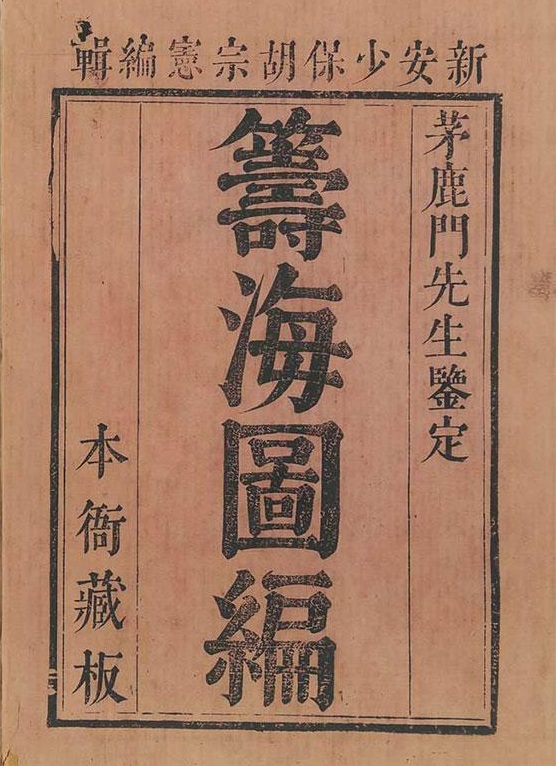 新安少保胡宗憲編輯
茅鹿門先生鑒定
籌海圖編
本衙藏板